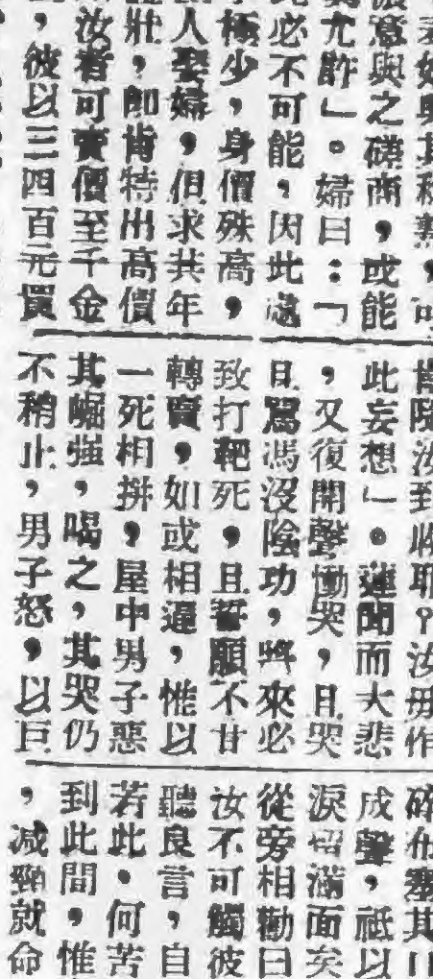 與其稔熟,可
意與之磋商,或能
尤許」。婦曰:「
必不可能,因此處
極少,身價殊高,
人娶婦,但求其年
壯,即肯特出高價
汝者可賣價至千金
,彼以三四百元買
汝到此耶?汝毋作
此妄想」。蓮聞而大悲
,又復開聲慟哭,且哭
且罵馮沒陰功,將來必
致打靶死,且誓願不甘
轉賣,如或相逼,惟以
一死相拚,屋中男子惡
其崛強,喝之,其哭仍
不稍止,男子怒,以巨
碎布塞其口
成聲,祇以
淚滿面矣
從旁相勸曰
汝不可觸彼
聽良言,自
若此,何苦
到此間,惟
,減頸就命